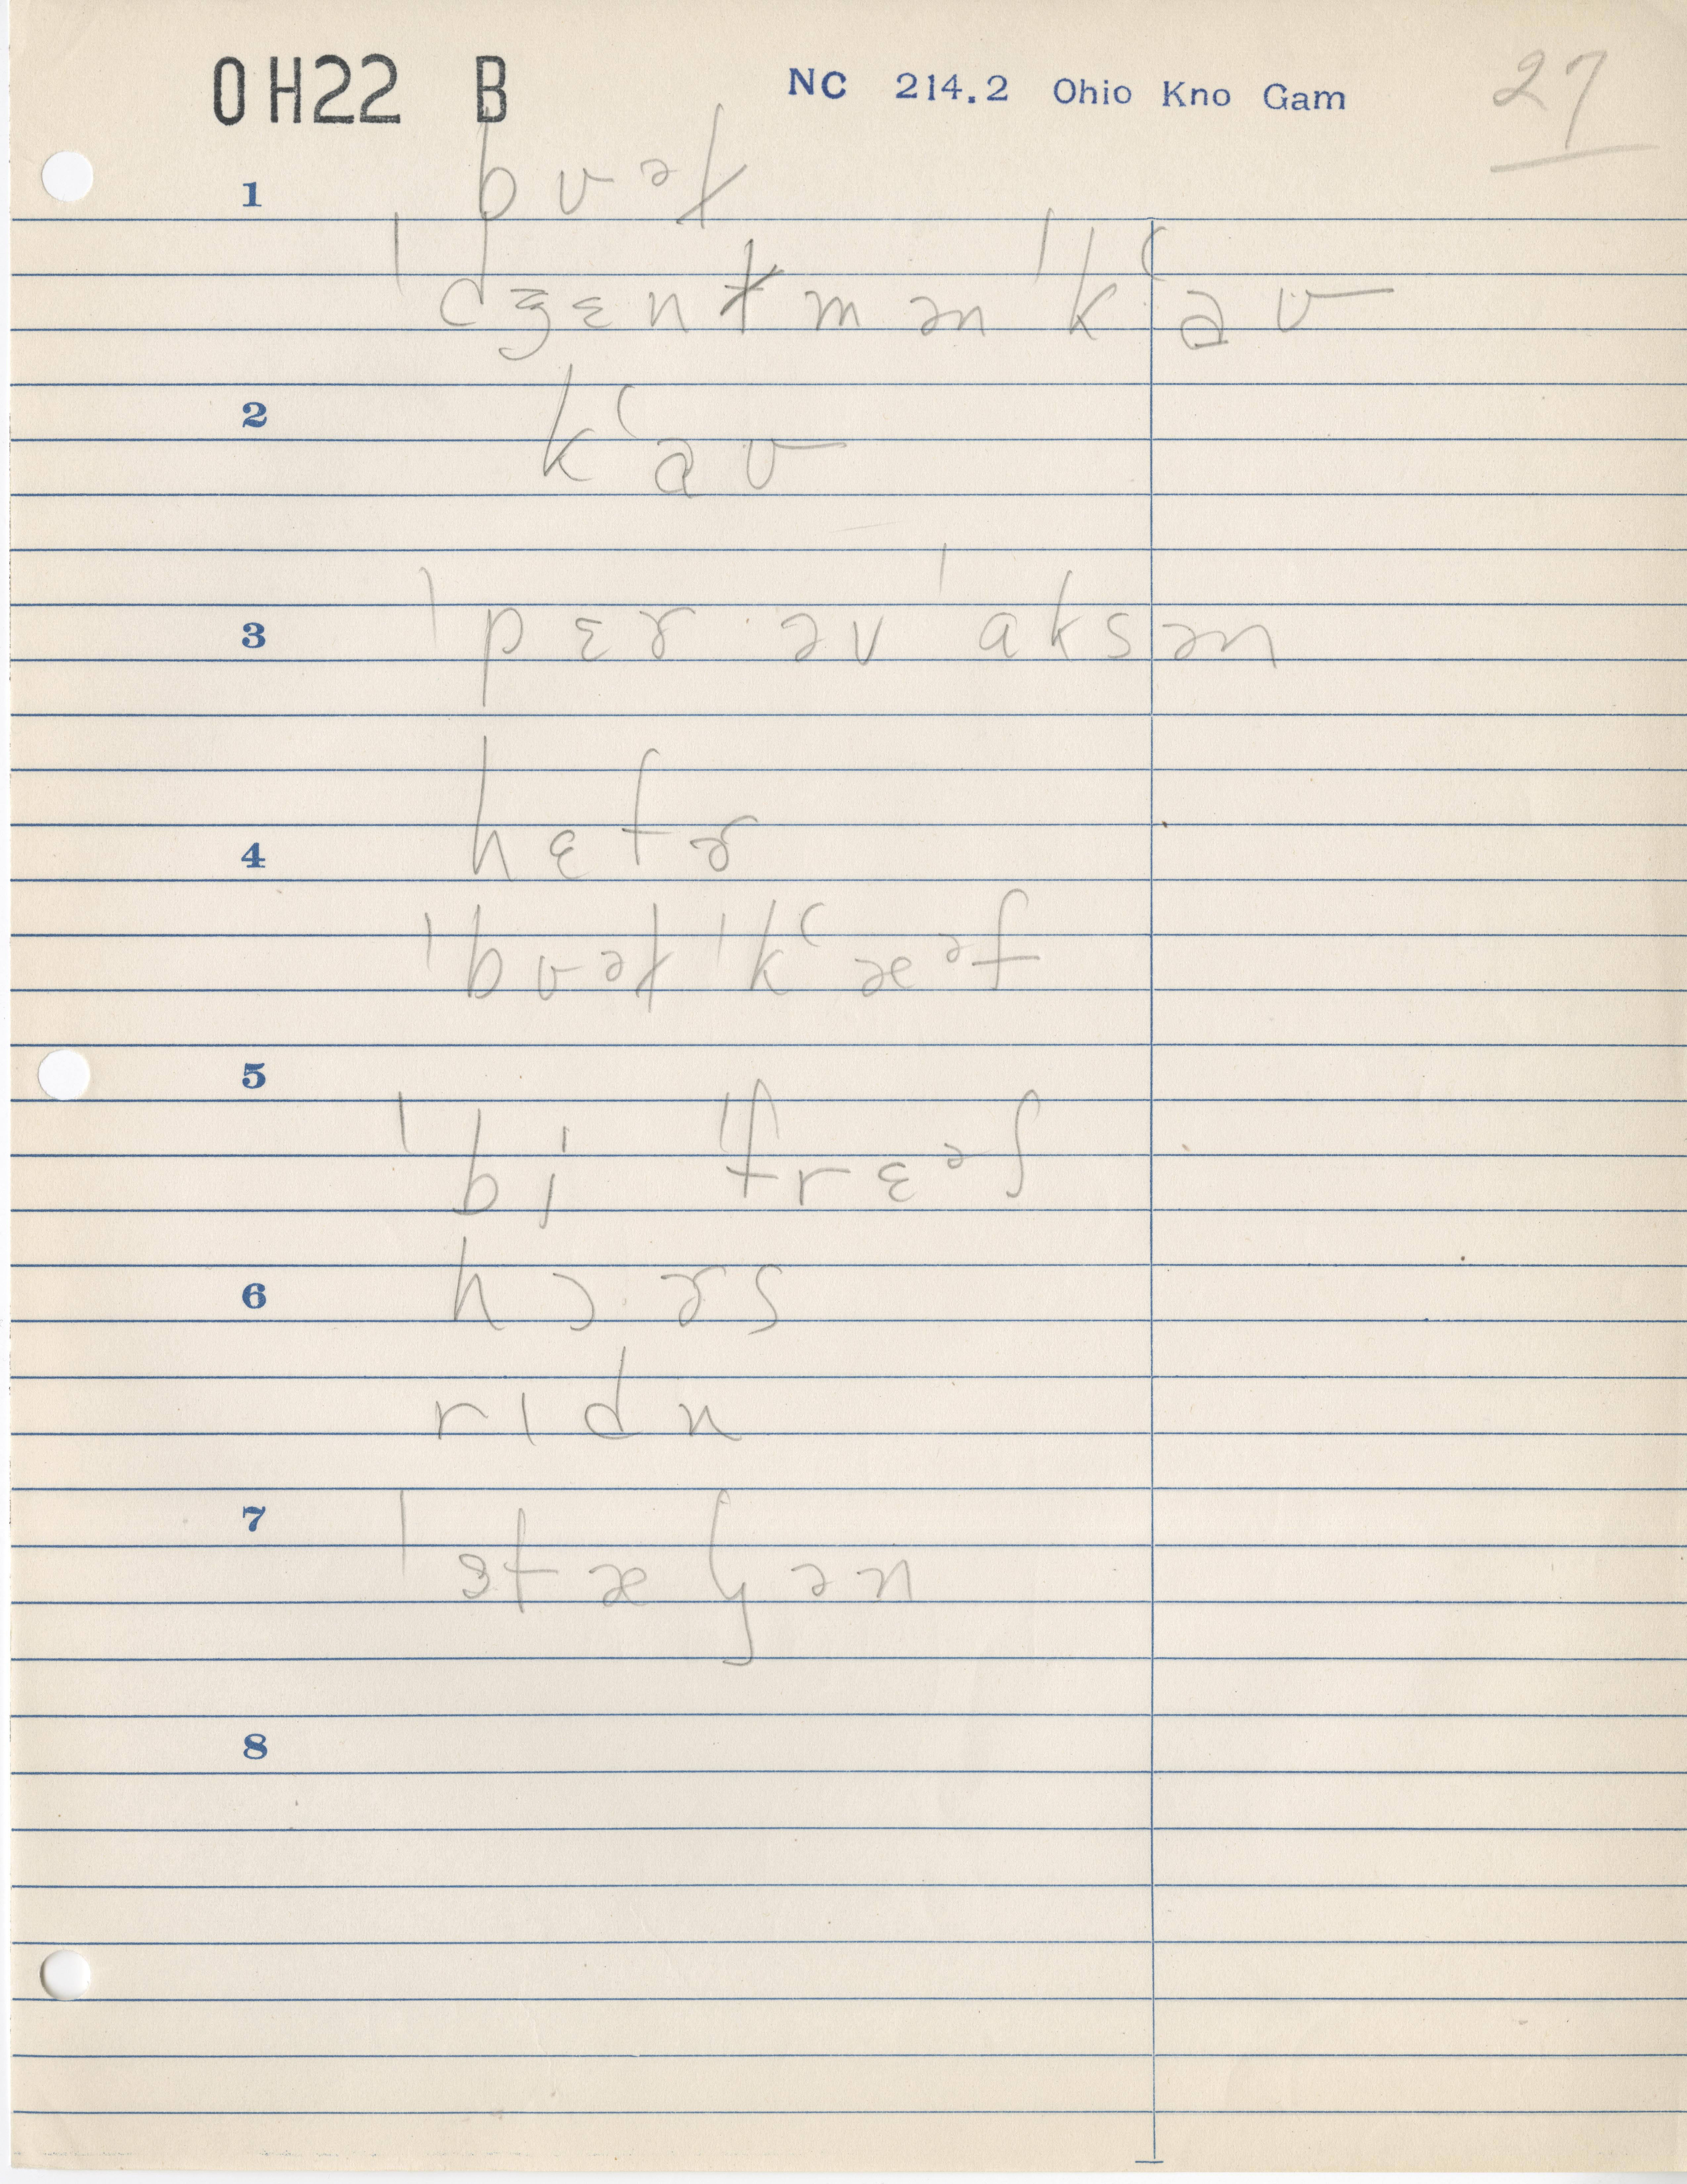 OH22 B NC 214.2 Ohio Kno Gam 27
1 bʊᵊɫ
ˈdʒɛnɫmənˈkʻaʊ
2 kʻaʊ
3 ˈpɛɚ əvˈaksən
4 hɛfɚ
ˈbʊᵊɫˈkʻæᵊf
5 ˈbi ˈfrɛᵊʃ
6 hɔɚs
rɪdn
7 ˈstæljən
8